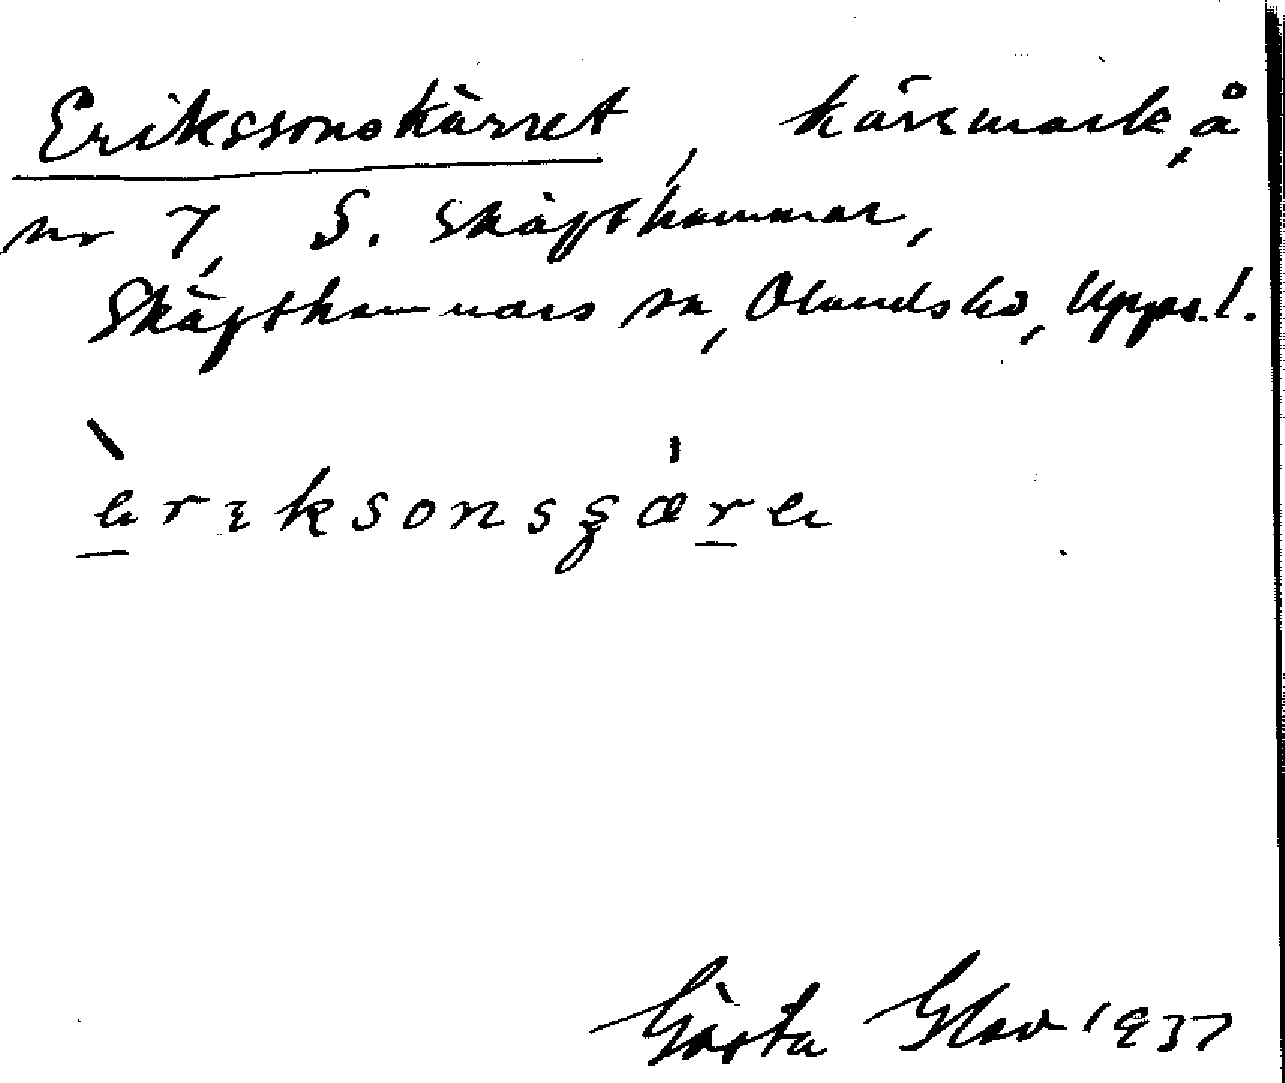 Erikssonskärret, kärrmark, å
nr 7, S. Skäfthammar,
Skäfthammars sn, Olands hd, Uppl.
Gösta 1937